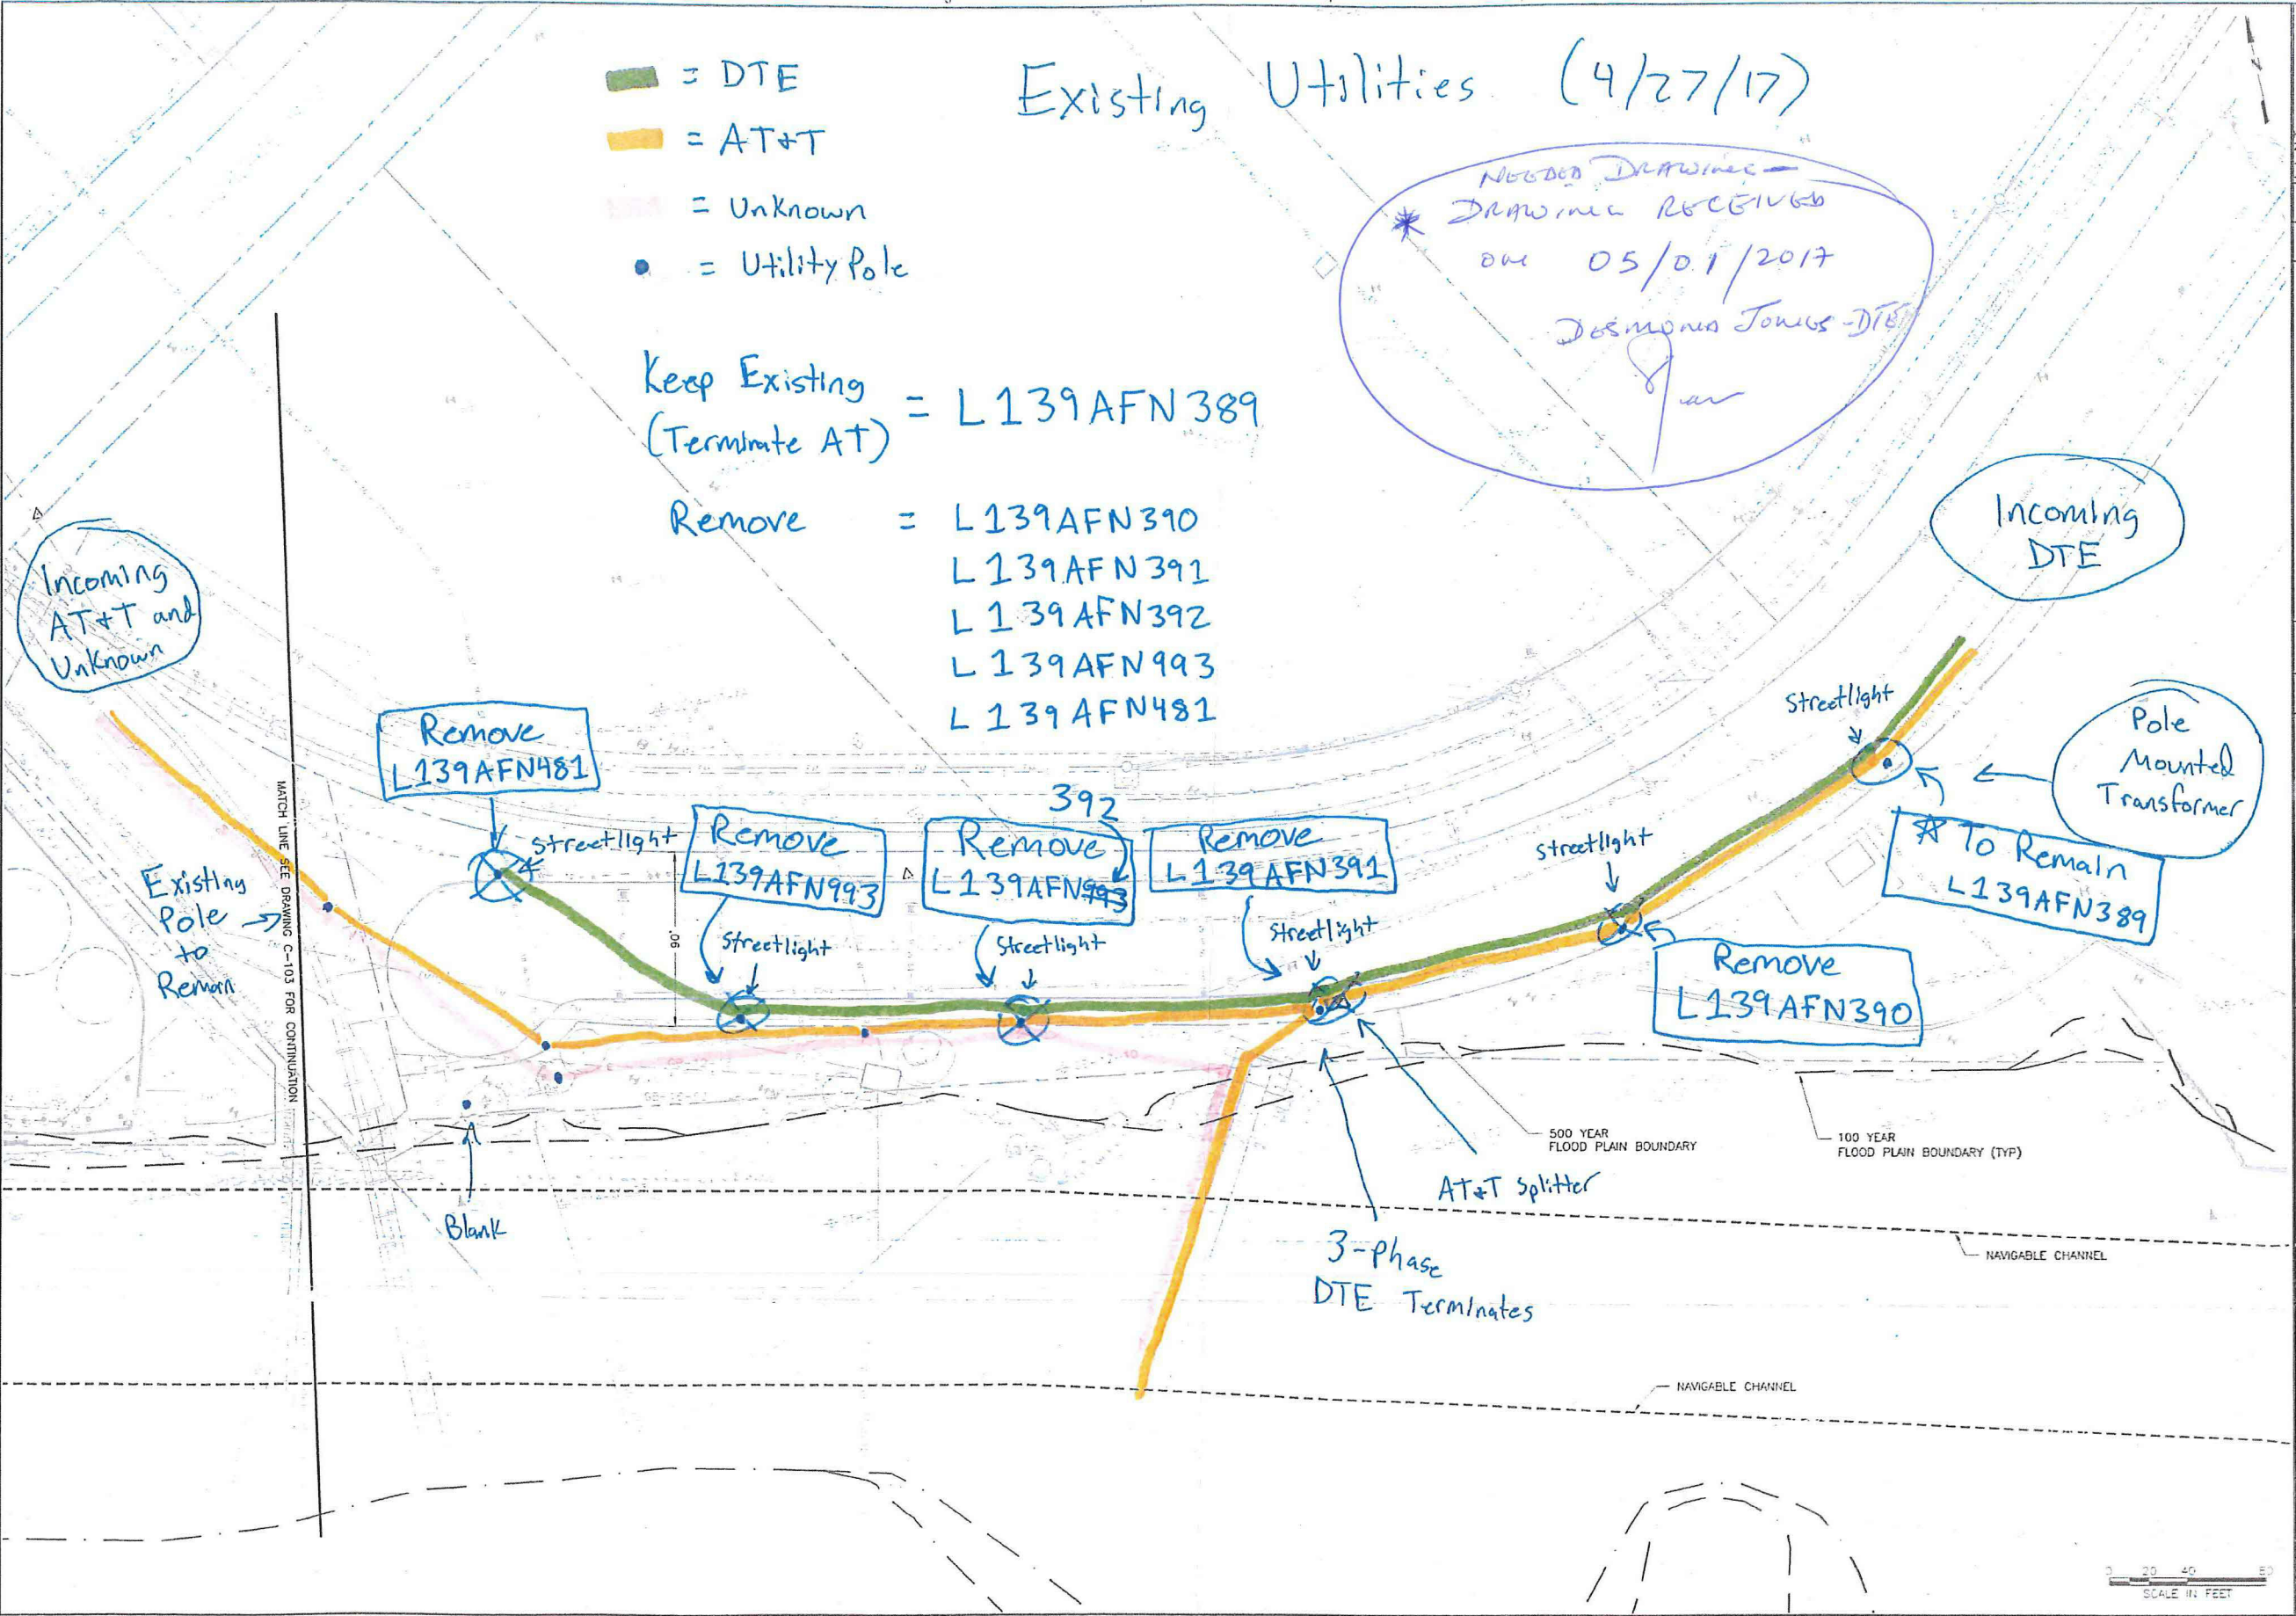 = DTE
= AT&T
= Unknown
= Utility Pole
Existing Utilities (4/27/17)
NEEDED DRAWING
* DRAWING RECEIVED
ON 05/01/2017
DESMOND JONES-DTE
Keep Existing
(Terminate AT)
= L139AFN389
Remove = L139AFN390
L139AFN391
L139AFN392
L139AFN993
L139AFN481
Incoming
DTE
Incoming
AT&T and
Unknown
Remove
L139AFN481
Streetlight
Remove
L139AFN993
Streetlight
392
Remove
L139AFN993
Streetlight
Remove
L139AFN391
Streetlight
Streetlight
Streetlight
Pole
Mounted
Transformer
To Remain
L139AFN389
Remove
L139AFN390
Existing
Pole
to
Remain
MATCH LINE SEE DRAWING C-103 FOR CONTINUATION
90'
Blank
500 YEAR
FLOOD PLAIN BOUNDARY
100 YEAR
FLOOD PLAIN BOUNDARY (TYP)
AT&T Splitter
3-phase
DTE Terminates
NAVIGABLE CHANNEL
NAVIGABLE CHANNEL
0 20 40 80
SCALE IN FEET